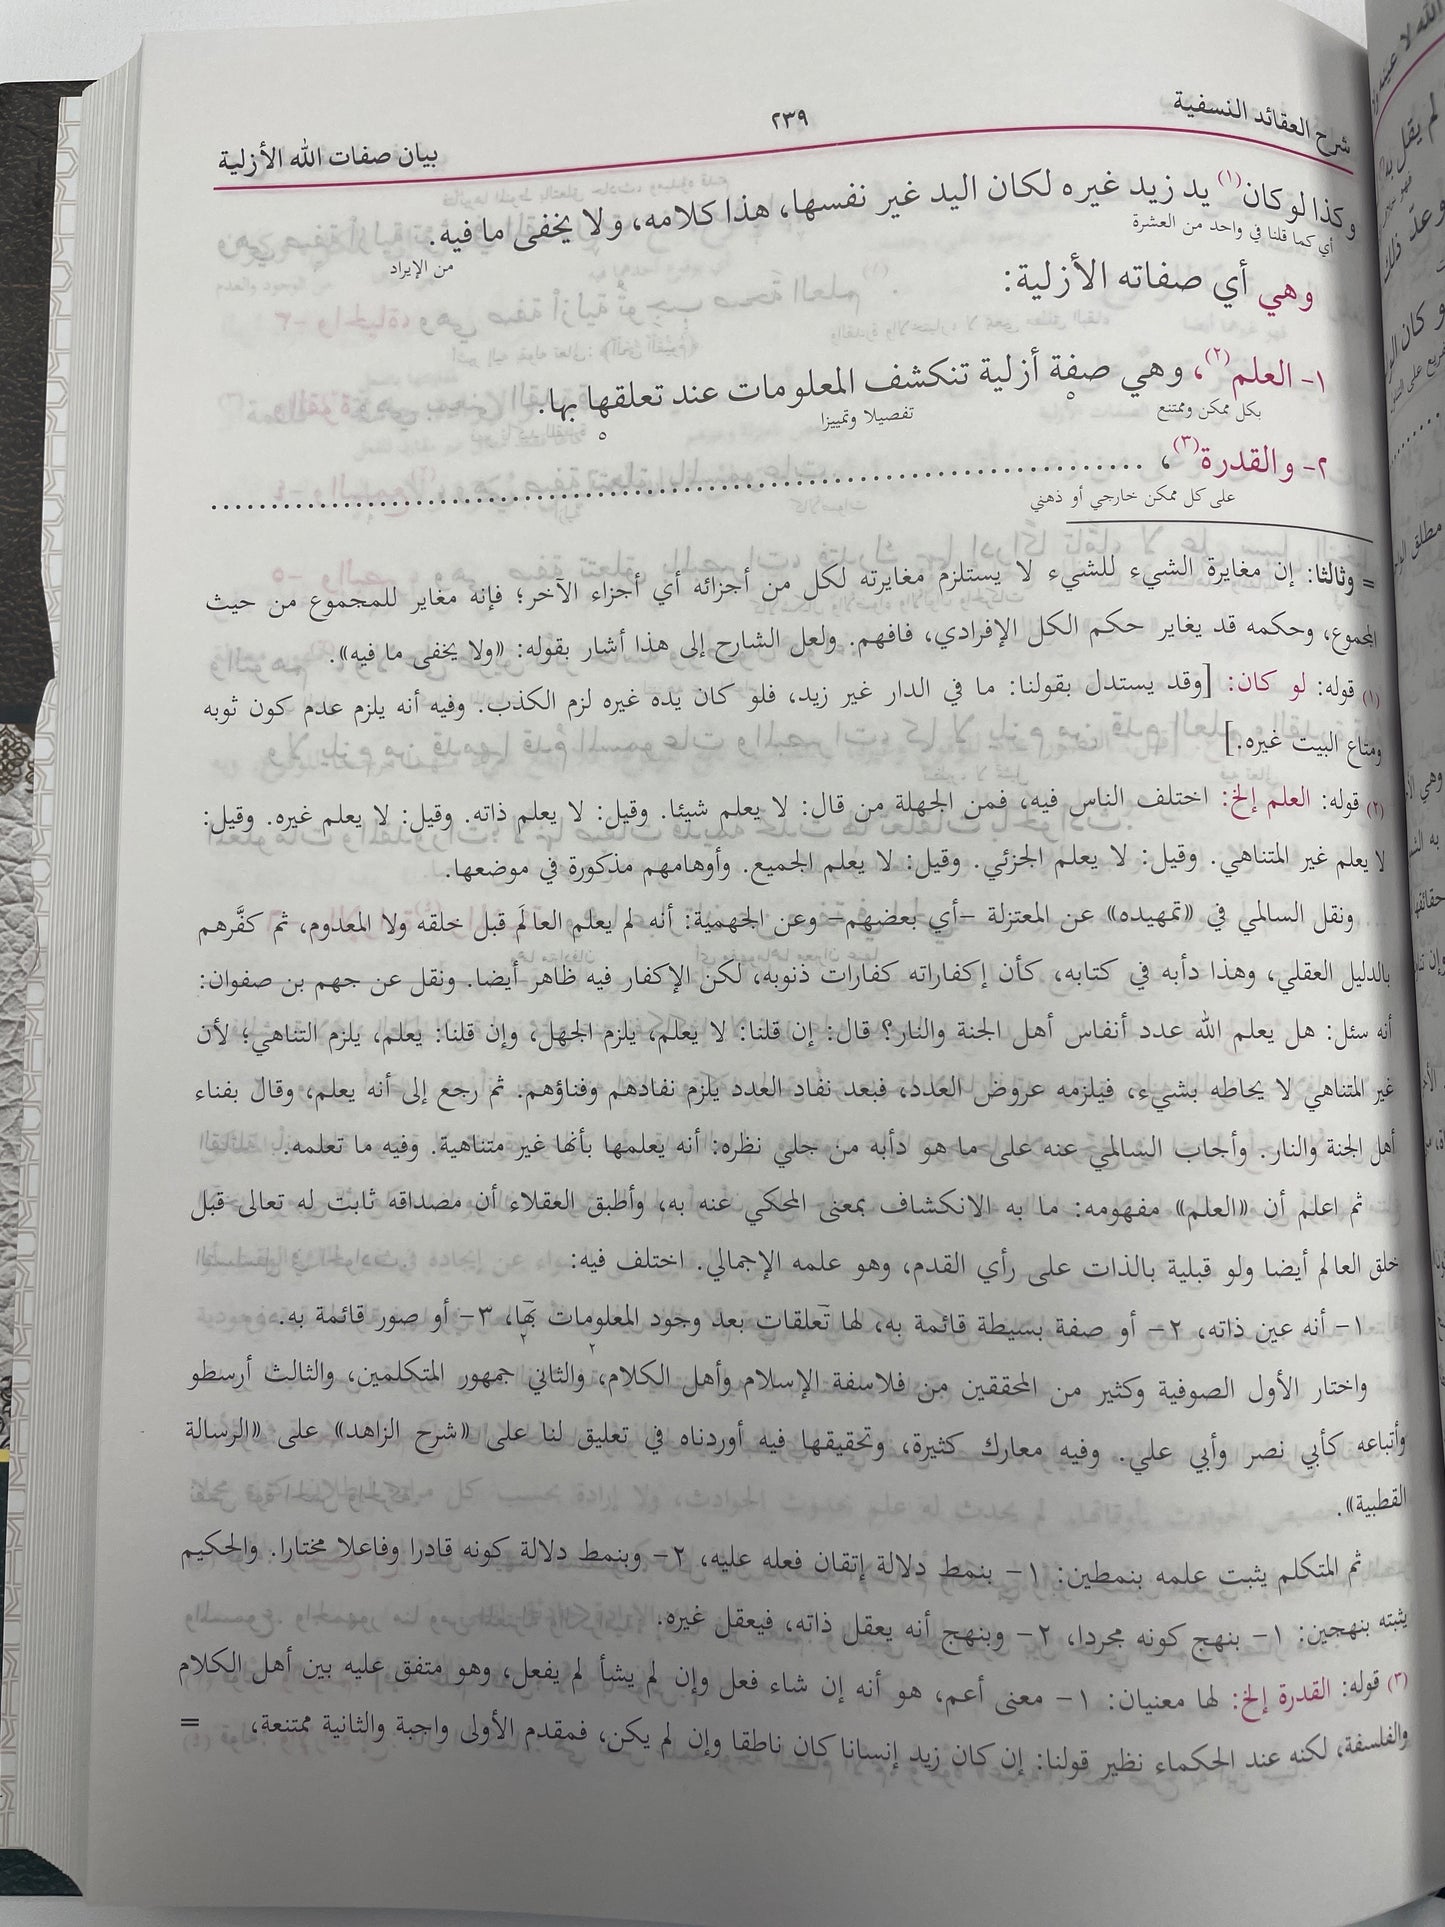 شرح العقائد النسفية
٢٣٩
بيان صفات الله الأزلية
وكذا لو كان(١) يد زيد غيره لكان اليد غير نفسها، هذا كلامه، ولا يخفى ما فيه.
أي كما قلنا في واحد من العشرة
من الإيراد
وهي أي صفاته الأزلية:
١- العلم(٢)، وهي صفة أزلية تنكشف المعلومات عند تعلقها بها.
بكل ممكن وممتنع
تفصيلا وتمييزا
٢- والقدرة(٣)، ................................................
على كل ممكن خارجي أو ذهني
= وثالثا: إن مغايرة الشيء للشيء لا يستلزم مغايرته لكل من أجزائه أي أجزاء الآخر؛ فإنه مغاير للمجموع من حيث
المجموع، وحكمه قد يغاير حكم الكل الإفرادي، فافهم. ولعل الشارح إلى هذا أشار بقوله: «ولا يخفى ما فيه».
(١) قوله: لو كان: [وقد يستدل بقولنا: ما في الدار غير زيد، فلو كان يده غيره لزم الكذب. وفيه أنه يلزم عدم كون ثوبه
ومتاع البيت غيره.]
(٢) قوله: العلم إلخ: اختلف الناس فيه، فمن الجهلة من قال: لا يعلم شيئا. وقيل: لا يعلم ذاته. وقيل: لا يعلم غيره. وقيل:
لا يعلم غير المتناهي. وقيل: لا يعلم الجزئي. وقيل: لا يعلم الجميع. وأوهامهم مذكورة في موضعها.
ونقل السالمي في «تمهيده» عن المعتزلة –أي بعضهم– وعن الجهمية: أنه لم يعلم العالَم قبل خلقه ولا المعدوم، ثم كفَّرهم
بالدليل العقلي، وهذا دأبه في كتابه، كأن إكفاراته كفارات ذنوبه، لكن الإكفار فيه ظاهر أيضا. ونقل عن جهم بن صفوان:
أنه سئل: هل يعلم الله عدد أنفاس أهل الجنة والنار؟ قال: إن قلنا: لا يعلم، يلزم الجهل، وإن قلنا: يعلم، يلزم التناهي؛ لأن
غير المتناهي لا يحاطه بشيء، فيلزمه عروض العدد، فبعد نفاد العدد يلزم نفادهم وفناؤهم. ثم رجع إلى أنه يعلم، وقال بفناء
أهل الجنة والنار. وأجاب السالمي عنه على ما هو دأبه من جلي نظره: أنه يعلمها بأنها غير متناهية. وفيه ما تعلمه.
ثم اعلم أن «العلم» مفهومه: ما به الانكشاف بمعنى المحكي عنه به، وأطبق العقلاء أن مصداقه ثابت له تعالى قبل
خلق العالم أيضا ولو قبلية بالذات على رأي القدم، وهو علمه الإجمالي. اختلف فيه:
١– أنه عين ذاته، ٢– أو صفة بسيطة قائمة به، لها تعلقات بعد وجود المعلومات بها، ٣– أو صور قائمة به.
واختار الأول الصوفية وكثير من المحققين من فلاسفة الإسلام وأهل الكلام، والثاني جمهور المتكلمين، والثالث أرسطو
وأتباعه كأبي نصر وأبي علي. وفيه معارك كثيرة، وتحقيقها فيه أوردناه في تعليق لنا على «شرح الزاهد» على «الرسالة
القطبية».
ثم المتكلم يثبت علمه بنمطين: ١– بنمط دلالة إتقان فعله عليه، ٢– وبنمط دلالة كونه قادرا وفاعلا مختارا. والحكيم
يثبته بنهجين: ١– بنهج كونه مجردا، ٢– وبنهج أنه يعقل ذاته، فيعقل غيره.
(٣) قوله: القدرة إلخ: لها معنيان: ١– معنى أعم، هو أنه إن شاء فعل وإن لم يشأ لم يفعل، وهو متفق عليه بين أهل الكلام
والفلسفة، لكنه عند الحكماء نظير قولنا: إن كان زيد إنسانا كان ناطقا وإن لم يكن، فمقدم الأولى واجبة والثانية ممتنعة، =